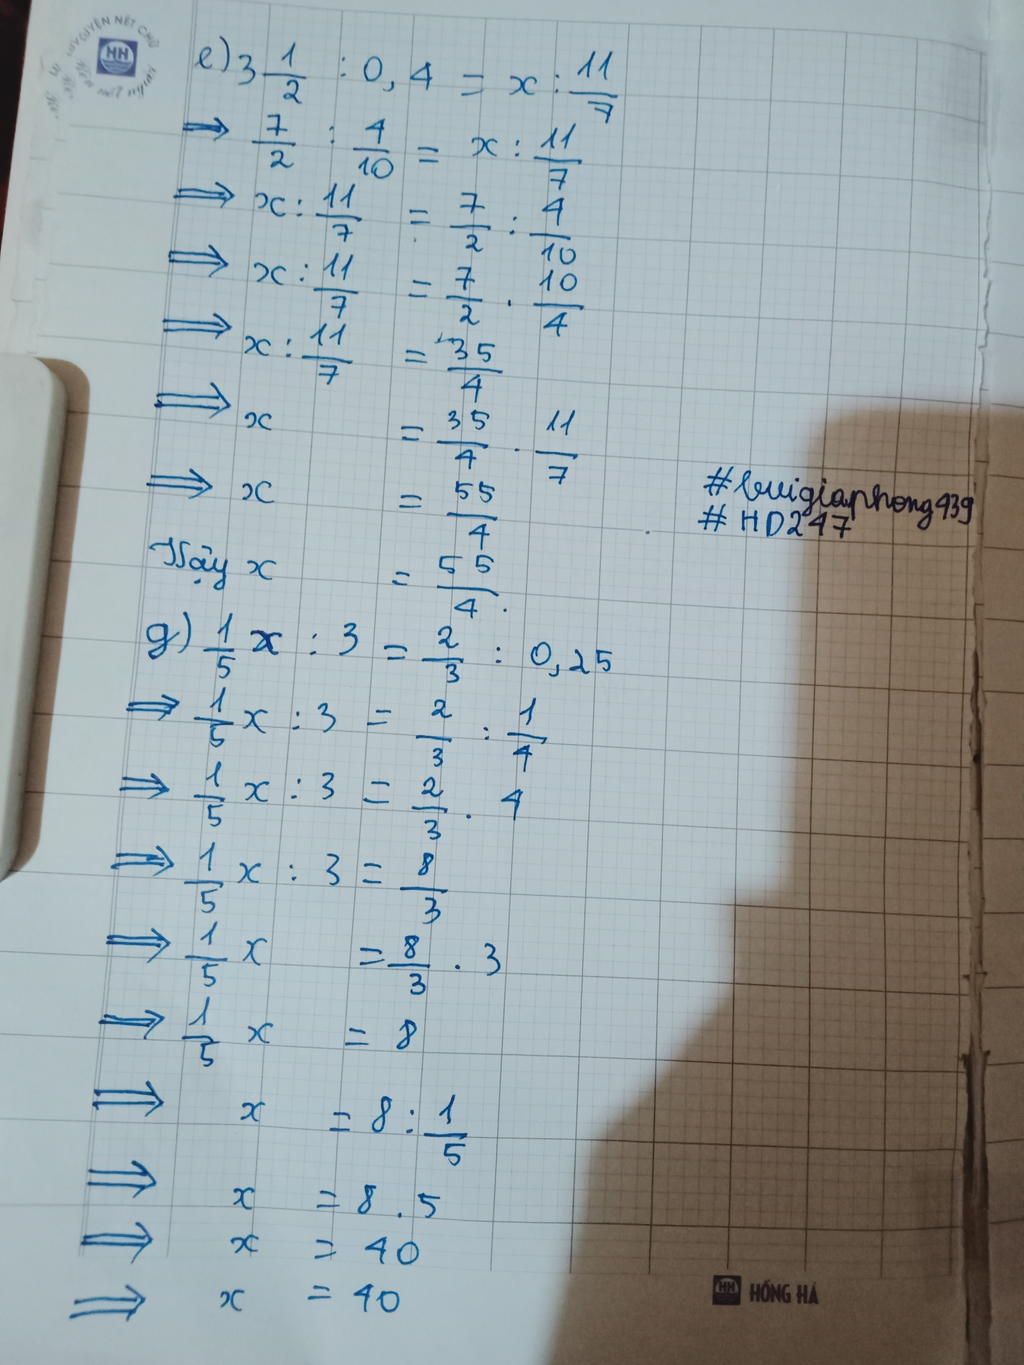 LUYỆN NÉT CHỮ
HH
e) 3 1/2 : 0,4 = x : 11/7
⇒ 7/2 : 4/10 = x : 11/7
⇒ x : 11/7 = 7/2 : 4/10
⇒ x : 11/7 = 7/2 . 10/4
⇒ x : 11/7 = 35/4
⇒ x = 35/4 . 11/7
⇒ x = 55/4
#buigiaphong439
#HD247
Vậy x = 55/4.
g) 1/5 x : 3 = 2/3 : 0,25
⇒ 1/5 x : 3 = 2/3 : 1/4
⇒ 1/5 x : 3 = 2/3 . 4
⇒ 1/5 x : 3 = 8/3
⇒ 1/5 x = 8/3 . 3
⇒ 1/5 x = 8
⇒ x = 8 : 1/5
⇒ x = 8 . 5
⇒ x = 40
⇒ x = 40
HH HỒNG HÀ